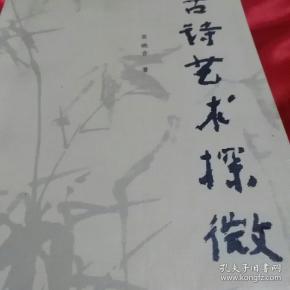 古诗艺术探微
葛晓音 著
孔夫子旧书网